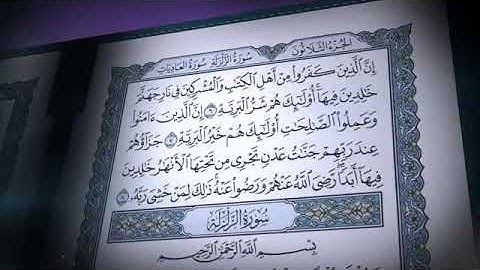 الجزء الثلاثون سورة الزلزلة سورة العاديات
إِنَّ ٱلَّذِينَ كَفَرُوا۟ مِنْ أَهْلِ ٱلْكِتَٰبِ وَٱلْمُشْرِكِينَ فِى نَارِ جَهَنَّمَ
خَٰلِدِينَ فِيهَآ ۚ أُو۟لَٰٓئِكَ هُمْ شَرُّ ٱلْبَرِيَّةِ ٦ إِنَّ ٱلَّذِينَ ءَامَنُوا۟
وَعَمِلُوا۟ ٱلصَّٰلِحَٰتِ أُو۟لَٰٓئِكَ هُمْ خَيْرُ ٱلْبَرِيَّةِ ٧ جَزَآؤُهُمْ
عِندَ رَبِّهِمْ جَنَّٰتُ عَدْنٍ تَجْرِى مِن تَحْتِهَا ٱلْأَنْهَٰرُ خَٰلِدِينَ
فِيهَآ أَبَدًا ۖ رَّضِىَ ٱللَّهُ عَنْهُمْ وَرَضُوا۟ عَنْهُ ۚ ذَٰلِكَ لِمَنْ خَشِىَ رَبَّهُۥ ٨
سُورَةُ الزَّلْزَلَةِ
بِسْمِ ٱللَّهِ ٱلرَّحْمَٰنِ ٱلرَّحِيمِ